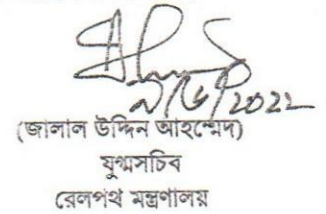 (জালাল উদ্দিন আহম্মেদ)
যুগ্মসচিব
রেলপথ মন্ত্রণালয়